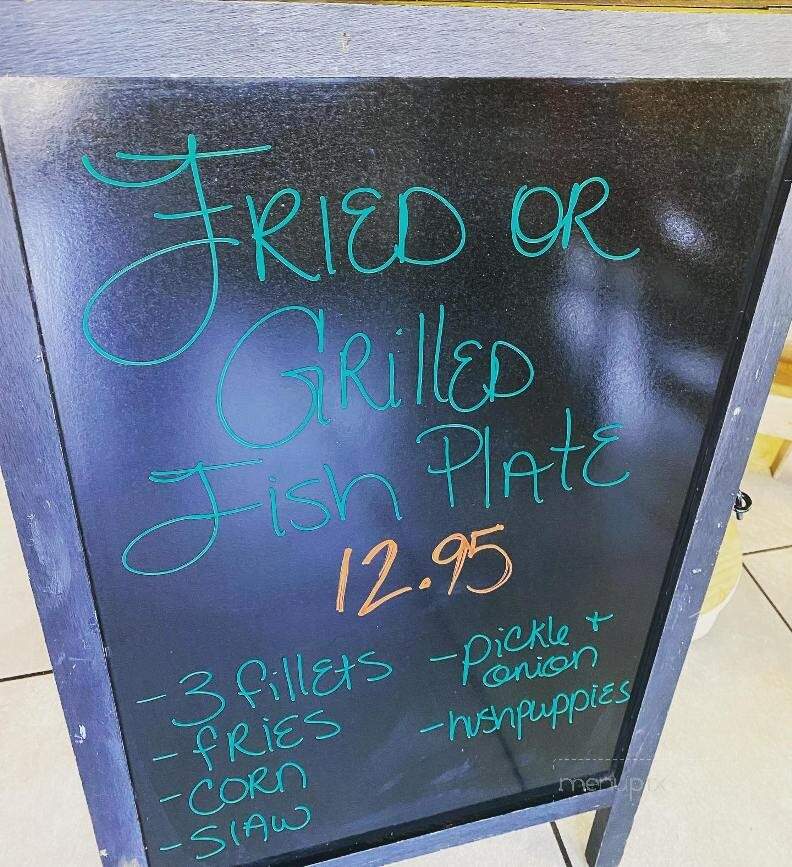 FRIED OR
GRillED
Fish PlAtE
12.95
- 3 fillEtS
- fRiES
- CORn
- SlAW
- Pickle +
onion
- hushpuppiES
menupix